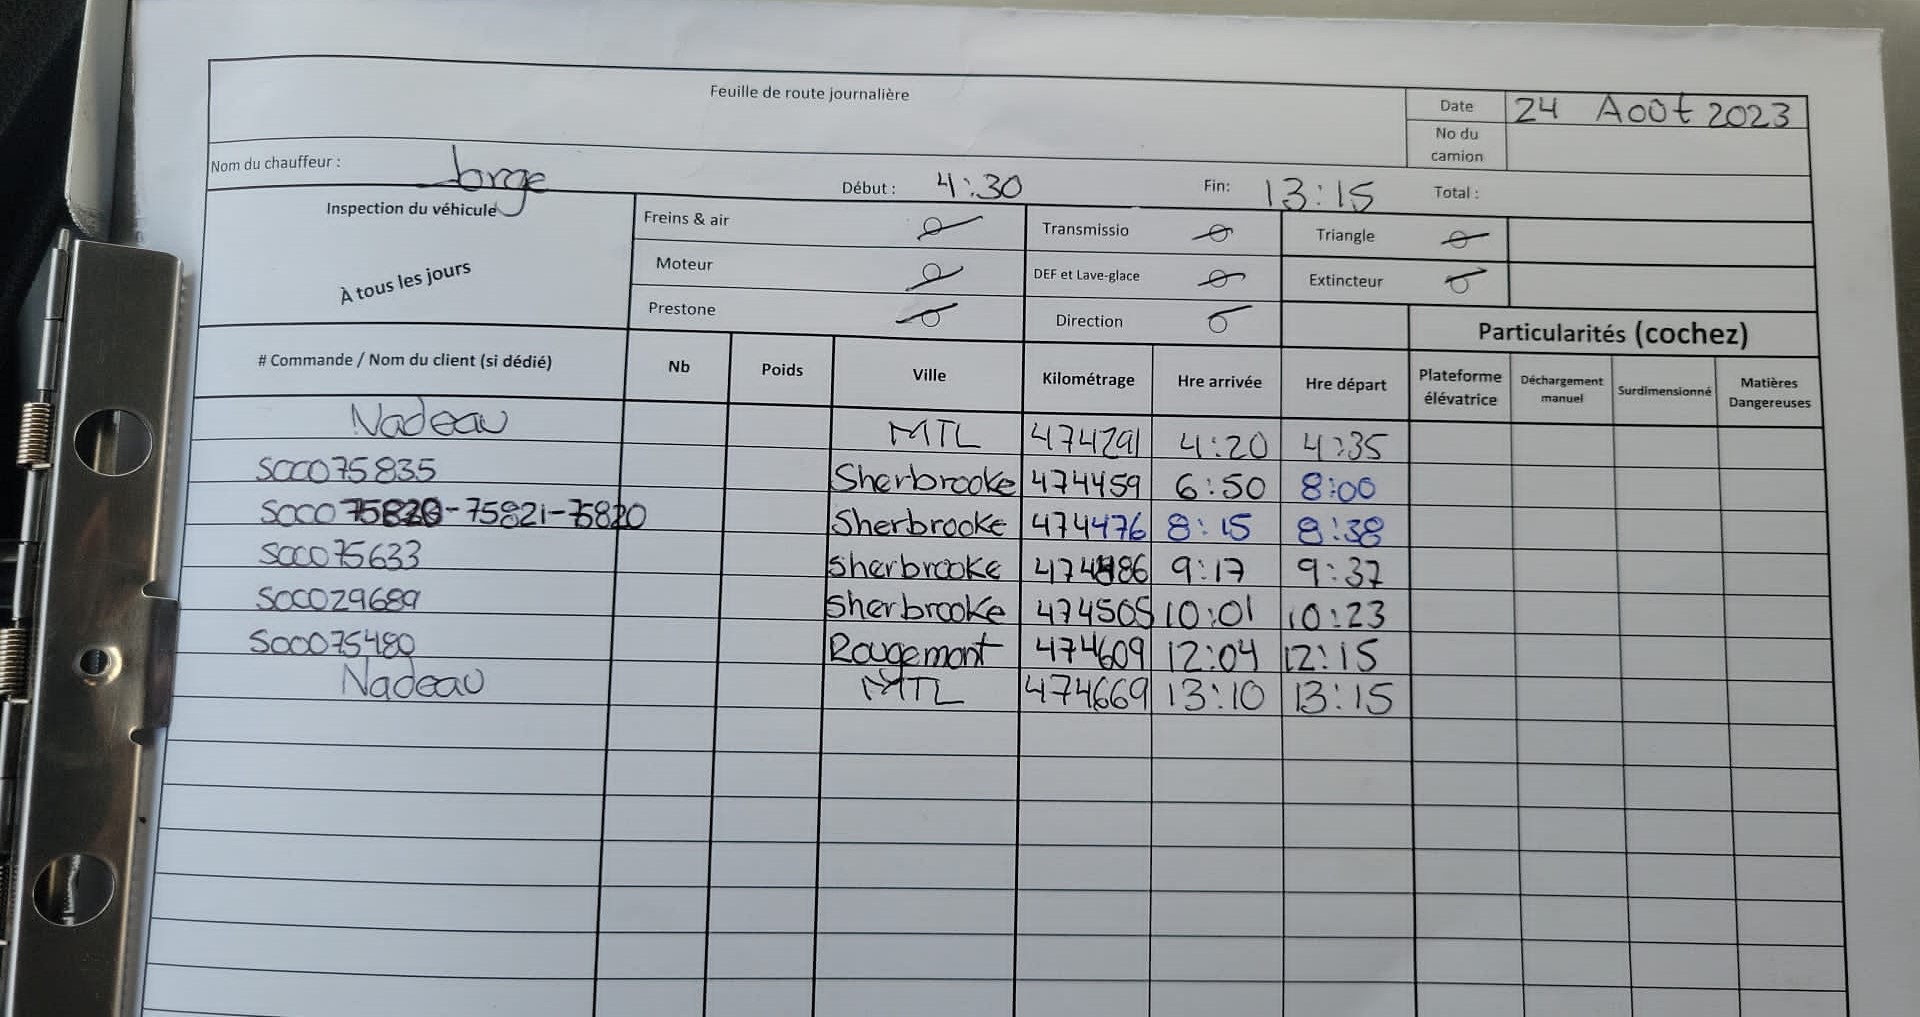 Feuille de route journalière
Date 24 Août 2023
No du camion
Nom du chauffeur : Jorge Début : 4:30 Fin: 13:15 Total :
Inspection du véhicule
À tous les jours
Freins & air Transmissio Triangle
Moteur DEF et Lave-glace Extincteur
Prestone Direction
Particularités (cochez)
# Commande / Nom du client (si dédié) Nb Poids Ville Kilométrage Hre arrivée Hre départ Plateforme élévatrice Déchargement manuel Surdimensionné Matières Dangereuses
Nadeau MTL 474291 4:20 4:35
SOCO75835 Sherbrooke 474459 6:50 8:00
SOCO -75821-75820 Sherbrooke 474476 8:15 8:38
SOCO75633 Sherbrooke 474486 9:17 9:37
SOCO29689 Sherbrooke 474505 10:01 10:23
SOCO75480 Rougemont 474609 12:04 12:15
Nadeau MTL 474669 13:10 13:15